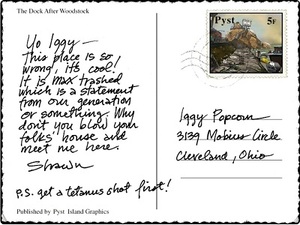 The Dock After Woodstock
Pyst 5F
Yo Iggy —
This place is so
wrong, it's cool!
It is max trashed
which is a statement
from our generation
or something. Why
don't you blow your
folks' house and
meet me here.
Shawn
P.S. get a tetanus shot first!
Iggy Popcorn
3139 Mobius Circle
Cleveland, Ohio
Published by Pyst Island Graphics